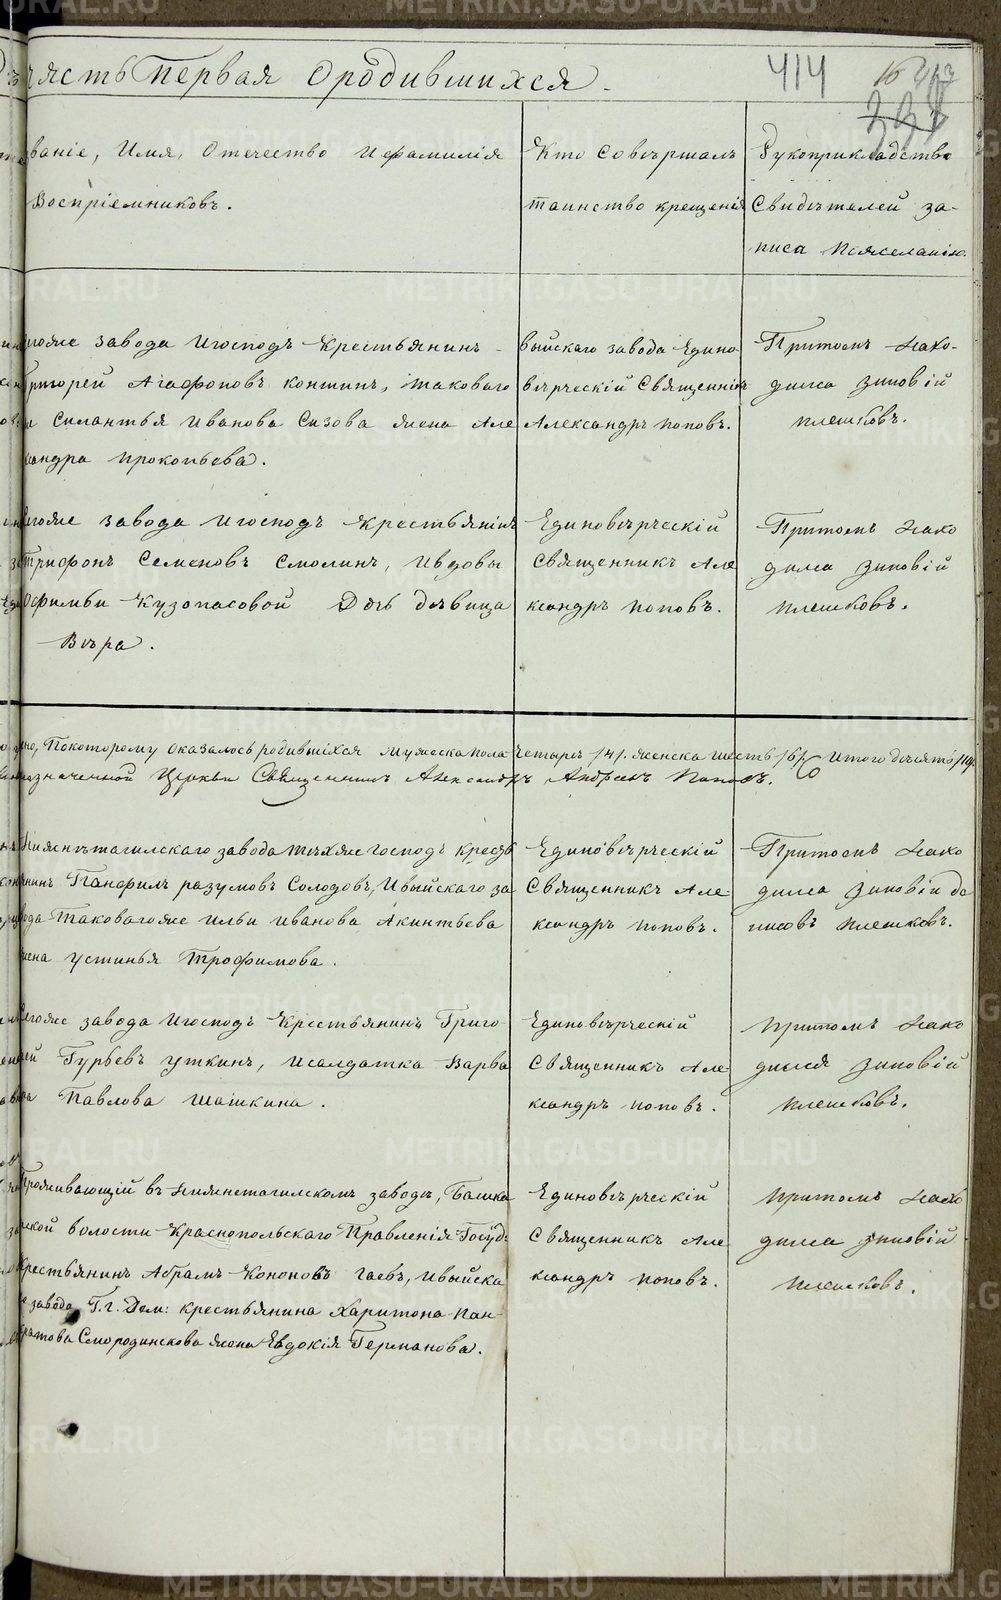 часть Первая О родившихся.
414
16
Званіе, Имя, Отечество и фамилія
Воспріемниковъ.
Кто совершалъ
таинство крещенія
Рукоприкладство
Свидѣтелей за-
писи по желанію.
тогоже завода и господъ крестьянинъ
Григорей Агафоновъ коншинъ, таковаго
Силантья Иванова Сизова жена Але
ксандра Прокопьева.
выйскаго завода Едино-
вѣрческій Священникъ
Александръ поповъ.
Притомъ нахо-
дился зиновій
плешковъ.
тогоже завода и господъ крестьянинъ
Трифонъ Семеновъ Смолинъ, и вдовы
Офимьи Кузопасовой дочь дѣвица
Вѣра.
Единовѣрческій
священникъ Але
ксандръ поповъ.
Притомъ нахо
дился зиновій
плешковъ.
Покоторому оказалось родившихся мужеска пола четыре /4/. женска шесть /6/. Итого десять /10/.
означенной Церкви Священникъ Александръ Андреевъ Поповъ.
Нижнѣтагилскаго завода тѣхже господъ кресть
янинъ Панфилъ разумовъ Солодовъ, и выйскаго за
вода таковагоже ильи иванова Акинтьева
жена устинья Трофимова.
Единовѣрческій
Священникъ Але
ксандръ поповъ.
Притомъ нахо
дился зиновій де
нисовъ плешковъ.
тогоже завода и господъ крестьянинъ Григо
рей Гурьевъ уткинъ, и салдатка Варва
ра Павлова шашкина.
Единовѣрческій
Священникъ Але
ксандръ поповъ.
притомъ нахо
дился зиновій
плешковъ.
Проживающій въ Нижнетагилскомъ заводѣ, Башка
рской волости Краснопольскаго Правленія Госуд:
крестьянинъ Абрамъ Кононовъ гаевъ, и выйска
го завода Г.г. Дем: крестьянина Харитона Пан-
кратова Смородинскова жена Евдокія Германова.
Единовѣрческій
Священникъ Але
ксандръ поповъ.
притомъ нахо
дился зиновій
плешковъ.
METRIKI.GASO-URAL.RU